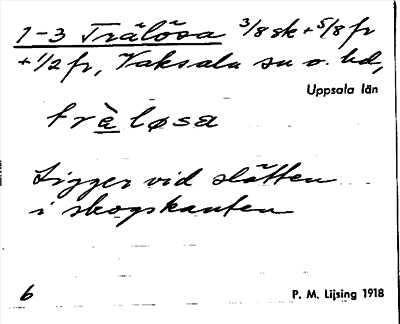 1-3 Trälösa 3/8 sk + 5/8 fr
+ 1/2 fr, Vaksala sn o. hd,
Uppsala län
trè̱løsa
Ligger vid slätten
i skogskanten
6
P. M. Lijsing 1918